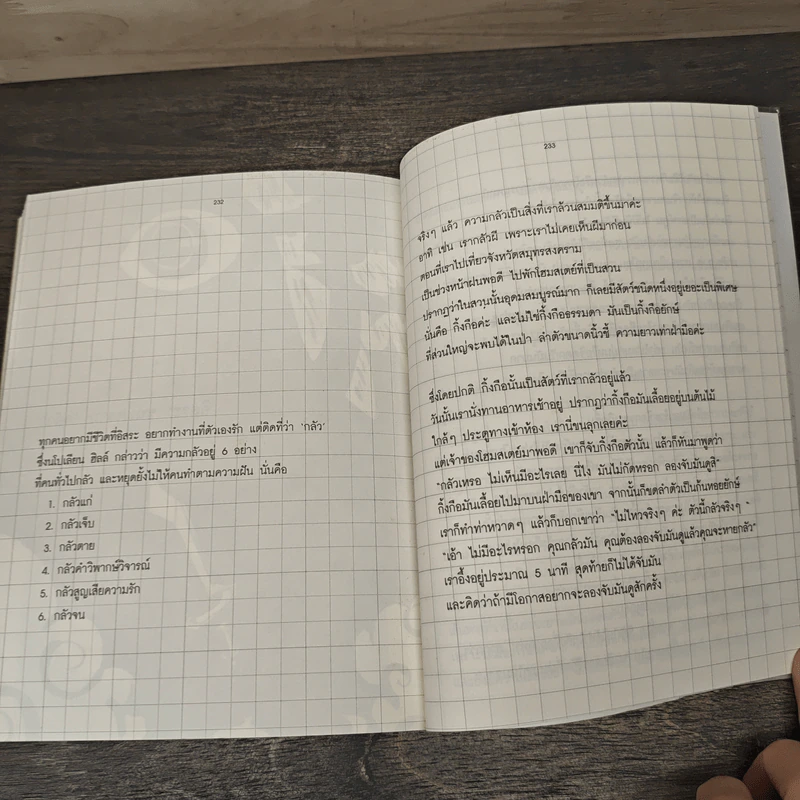 232
ทุกคนอยากมีชีวิตที่อิสระ อยากทำงานที่ตัวเองรัก แต่ติดที่ว่า ‘กลัว’
ซึ่งนโปเลียน ฮิลล์ กล่าวว่า มีความกลัวอยู่ 6 อย่าง
ที่คนทั่วไปกลัว และหยุดยั้งไม่ให้คนทำตามความฝัน นั่นคือ
1. กลัวแก่
2. กลัวเจ็บ
3. กลัวตาย
4. กลัวคำวิพากษ์วิจารณ์
5. กลัวสูญเสียความรัก
6. กลัวจน
233
จริงๆ แล้ว ความกลัวเป็นสิ่งที่เราล้วนสมมติขึ้นมาค่ะ
อาทิ เช่น เรากลัวผี เพราะเราไม่เคยเห็นผีมาก่อน
ตอนที่เราไปเที่ยวจังหวัดสมุทรสงคราม
เป็นช่วงหน้าฝนพอดี ไปพักโฮมสเตย์ที่เป็นสวน
ปรากฏว่าในสวนนั้นอุดมสมบูรณ์มาก ก็เลยมีสัตว์ชนิดหนึ่งอยู่เยอะเป็นพิเศษ
นั่นคือ กิ้งกือค่ะ และไม่ใช่กิ้งกือธรรมดา มันเป็นกิ้งกือยักษ์
ที่ส่วนใหญ่จะพบได้ในป่า ลำตัวขนาดนิ้วชี้ ความยาวเท่าฝ่ามือค่ะ
ซึ่งโดยปกติ กิ้งกือนั้นเป็นสัตว์ที่เรากลัวอยู่แล้ว
วันนั้นเรานั่งทานอาหารเช้าอยู่ ปรากฏว่ากิ้งกือมันเลื้อยอยู่บนต้นไม้
ใกล้ๆ ประตูทางเข้าห้อง เรานี่ขนลุกเลยค่ะ
แต่เจ้าของโฮมสเตย์มาพอดี เขาก็จับกิ้งกือตัวนั้น แล้วก็หันมาพูดว่า
“กลัวเหรอ ไม่เห็นมีอะไรเลย นี่ไง มันไม่กัดหรอก ลองจับมันดูสิ”
กิ้งกือมันเลื้อยไปมาบนฝ่ามือของเขา จากนั้นก็ขดลำตัวเป็นก้นหอยยักษ์
เราก็ทำท่าหวาดๆ แล้วก็บอกเขาว่า “ไม่ไหวจริงๆ ค่ะ ตัวนี้กลัวจริงๆ”
“เอ้า ไม่มีอะไรหรอก คุณกลัวมัน คุณต้องลองจับมันดูแล้วคุณจะหายกลัว”
เราอึ้งอยู่ประมาณ 5 นาที สุดท้ายก็ไม่ได้จับมัน
และคิดว่าถ้ามีโอกาสอยากจะลองจับมันดูสักครั้ง